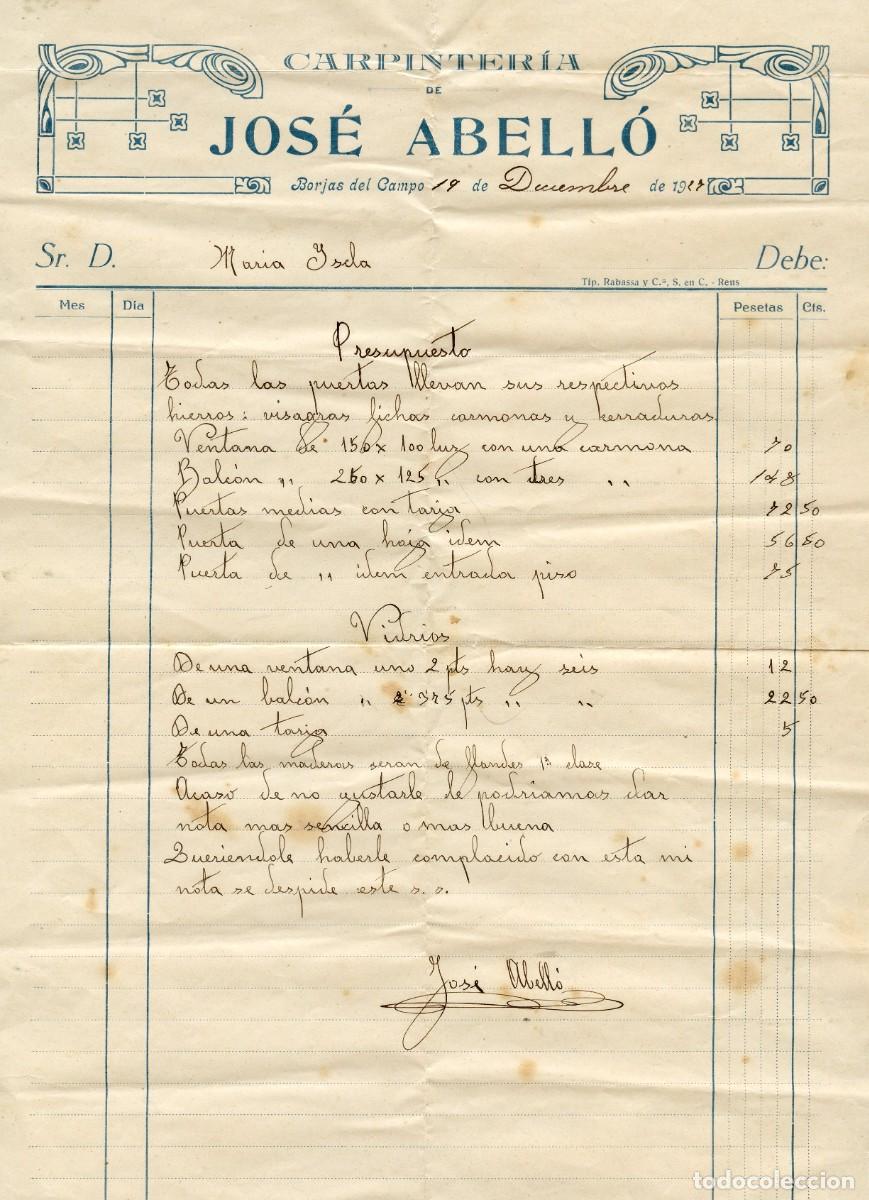 CARPINTERÍA
DE
JOSÉ ABELLÓ
Borjas del Campo 19 de Decembre de 1927
Sr. D. Maria Iscla Debe:
Tip. Rabassa y C.ª, S. en C. - Reus
Mes Día Pesetas Cts.
Presupuesto
Todas las puertas llevan sus respectivos
hierros: visagras fichas carmonas y cerraduras
Ventana de 150 x 100 luz con una carmona 70
Balcón " 250 x 125 " con tres " 148
Puertas medias con tarja 72 50
Puerta de una hoja idem 56 50
Puerta de " idem entrada piso 75
Vidrios
De una ventana uno 2 pts hay seis 12
De un balcón " 375 pts " " 22 50
De una tarja 5
Todas las maderas seran de llandes 1ª clase
Acaso de no gustarle le podriamos dar
nota mas sencilla o mas buena
Queriendole haberle complacido con esta mi
nota se despide este s. s.
José Abelló
todocoleccion